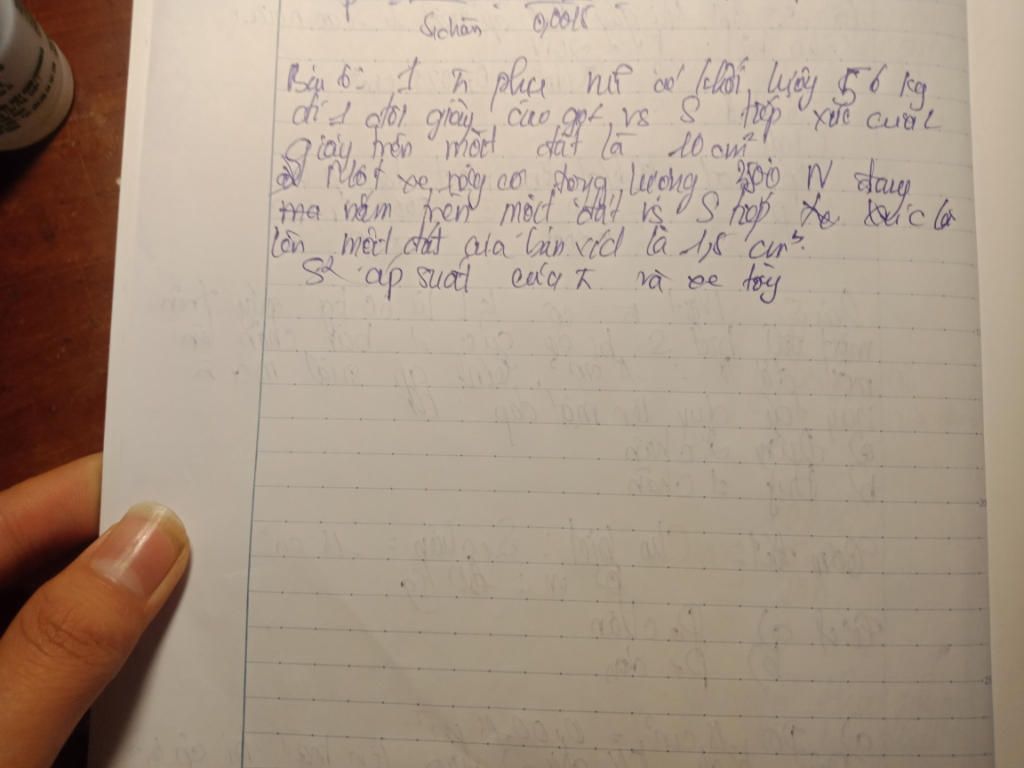 Schân 0,0015
Bài 6: 1 n phụ nữ có khối lượng 56 kg
đi 1 đôi giày cao gót vs S tiếp xúc của
giày trên mặt đất là 10 cm²
Một xe tăng có trọng lượng N đang
nằm trên mặt đất vs S tiếp xúc là
lên mặt đất của bản xích là 1,5 cm³.
S² áp suất của n và xe tăng